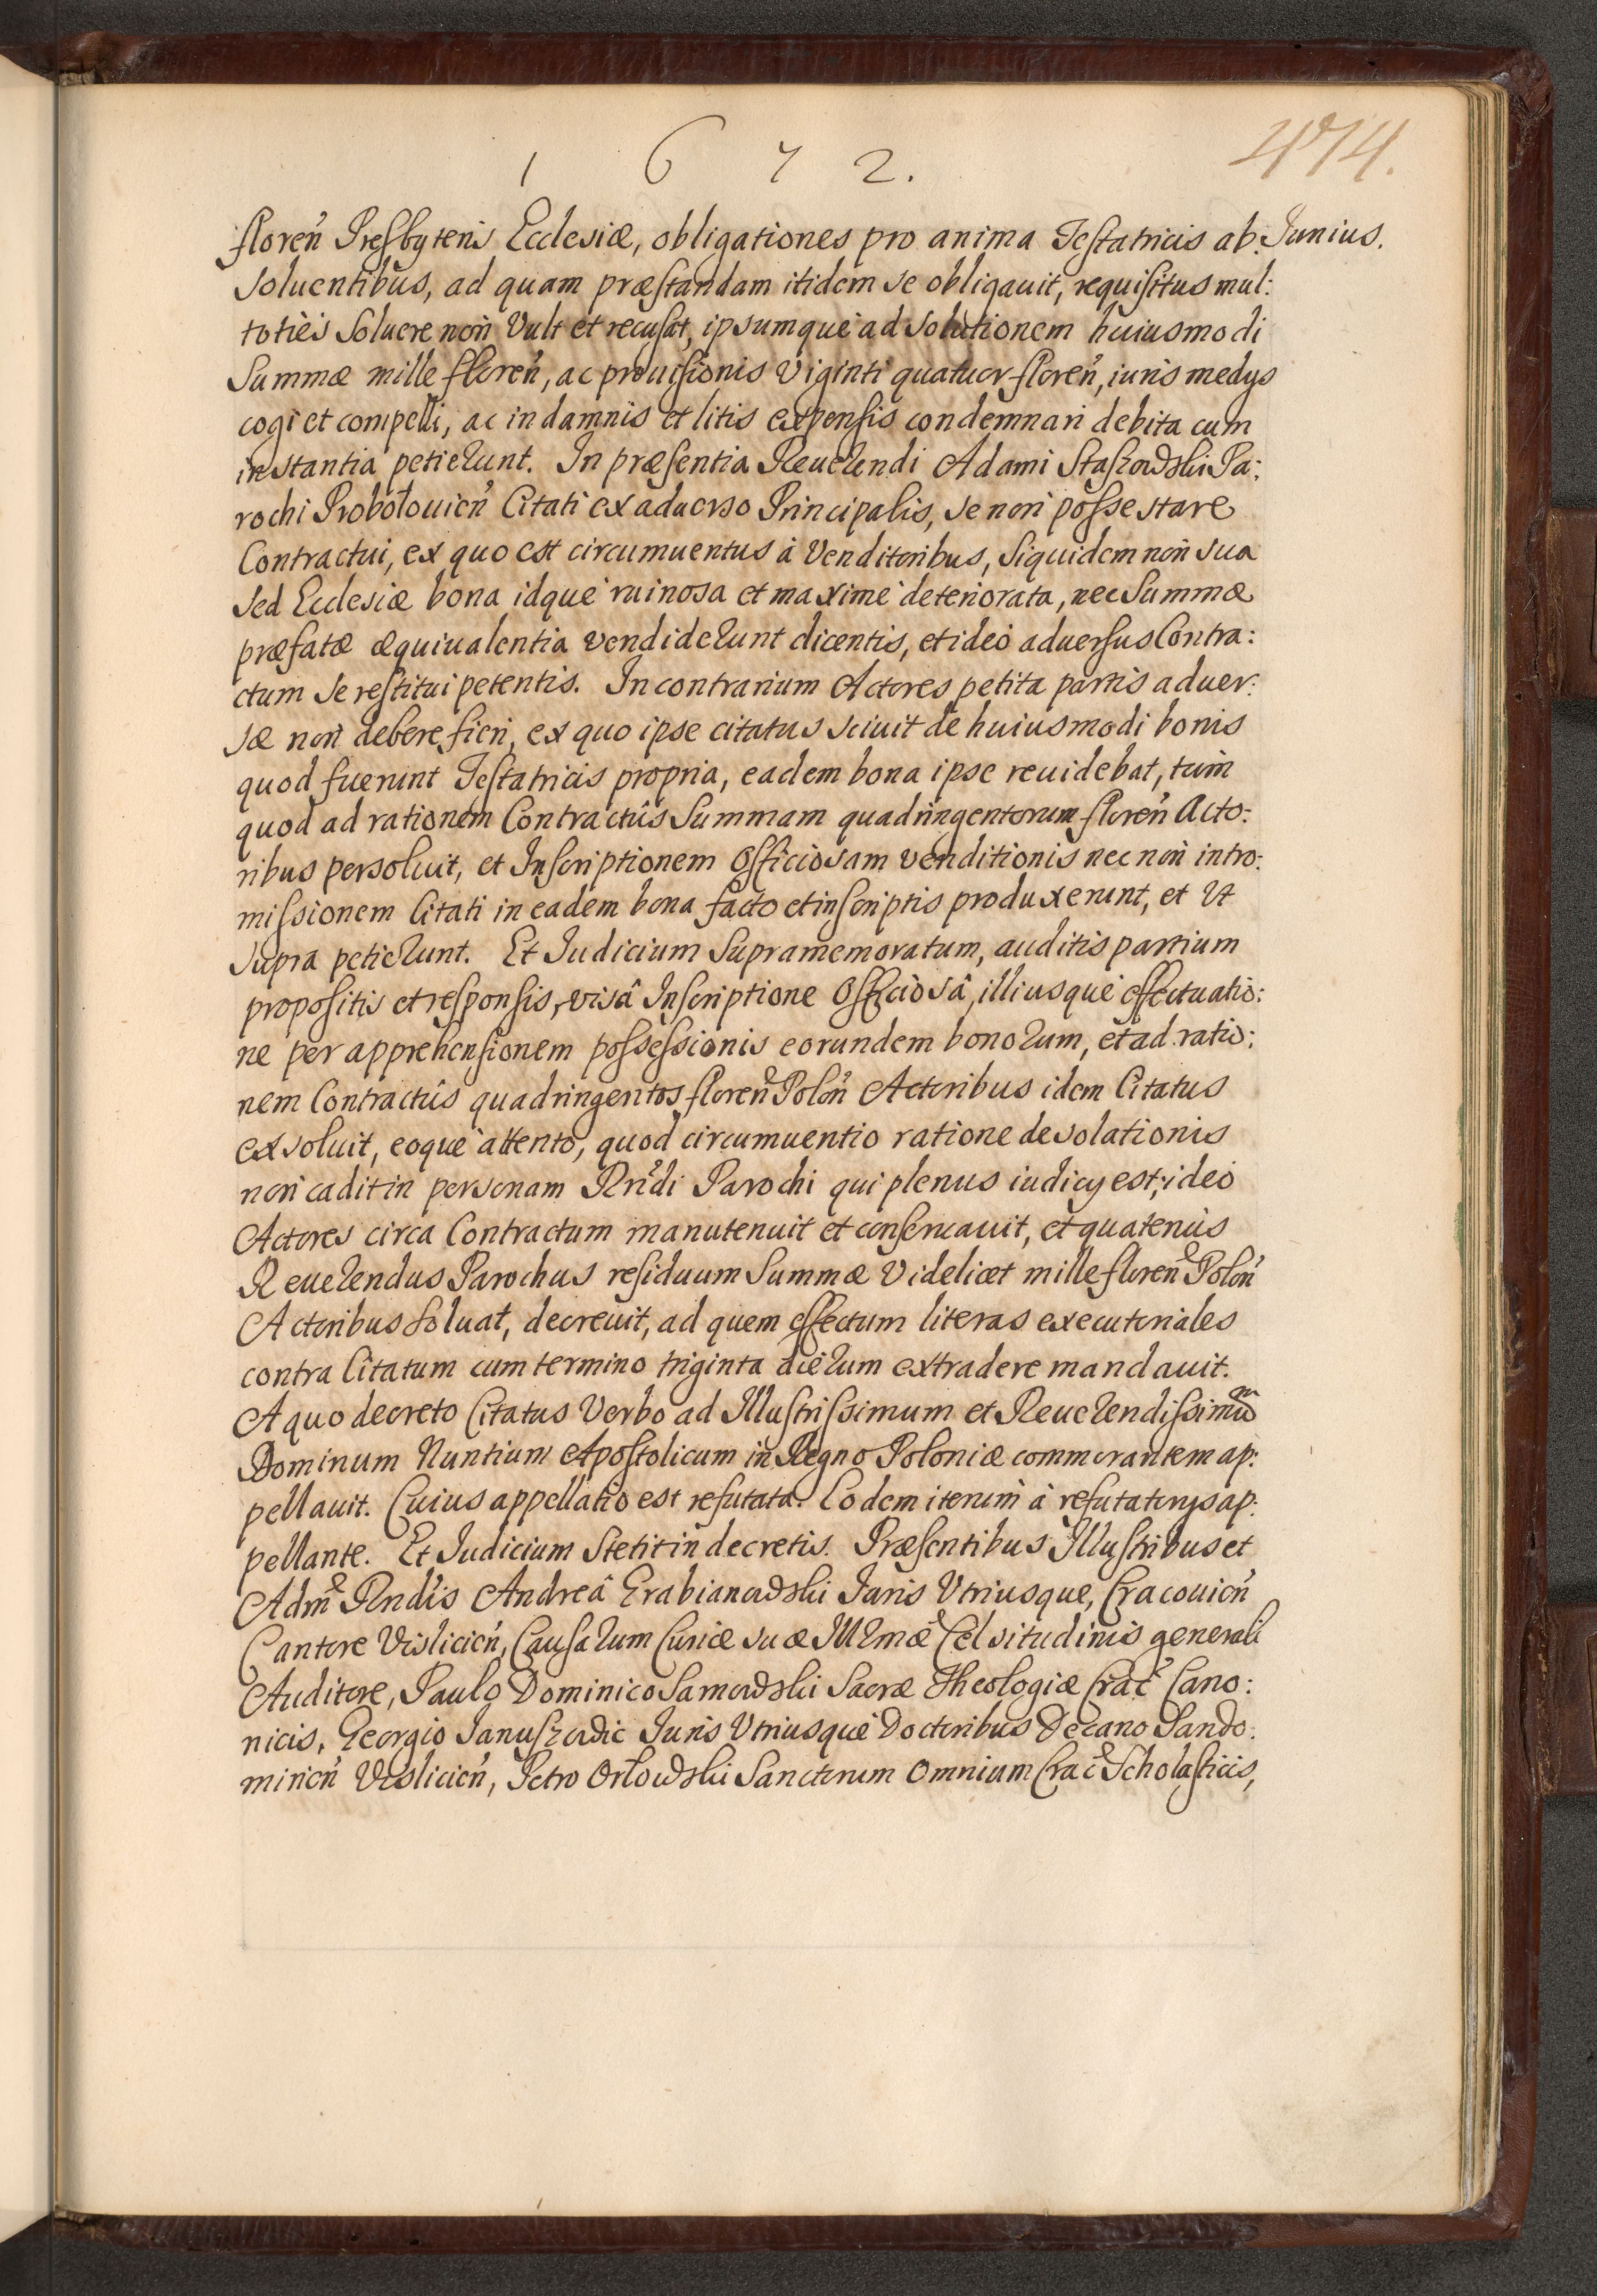 1 6 7 2.
474.
floreñ Presbyteris Ecclesiæ, obligationes pro anima Testatricis ab:
Junius.
soluentibus, ad quam præstandam itidem se obligauit, requisitus mul:
totiès soluere noǹ vult et recusat, ipsumquè ad solutionem huiusmodi
Summæ mille floreñ, ac prouisionis Viginti quatuor floreñ, iuris medys
cogi et compelli, ac in damnis et litis expensis condemnari debita cum
instantia petierunt. In præsentia Reuerendi Adami Staszowski Pa:
rochi Probołouicñ Citati ex aduerso Principalis, se noǹ posse stare
Contractui, ex quo est circumuentus à Venditoribus, siquidem noǹ sua
sed Ecclesiæ bona idquè ruinosa et maximè deteriorata, nec Summæ
præfatæ æquiualentia vendiderunt dicentis, et ideò aduersus Contra:
ctum se restitui petentis. In contrarium Actores petita partis aduer:
sæ noǹ debere fieri, ex quo ipse citatus sciuit de huiusmodi bonis
quod fuerunt Testatricis propria, eadem bona ipse reuidebat, tùm
quod ad rationem Contractûs Summam quadringentorum floreñ Acto:
ribus persoluit, et Inscriptionem Officiosam venditionis nec noǹ intro:
missionem Citati in eadem bona facto et in scriptis produxerunt, et Vt
supra petierunt. Et Iudicium Supramemoratum, auditis partium
propositis et responsis, visâ Inscriptione Officiosâ, illiusquè effectuatio:
ne per apprehensionem possessionis eorundem bonorum, et ad ratio:
nem Contractûs quadringentos floreñ Poloñ Actoribus idem Citatus
exsoluit, eoquè attento, quod circumuentio ratione desolationis
noǹ cadit in personam Rñdi Parochi qui plenus iudicy est, ideò
Actores circa Contractum manutenuit et conseruauit, et quatenùs
Reuerendus Parochus residuum Summæ Videlicet mille floreñ Poloñ
Actoribus soluat, decreuit, ad quem effectum literas executoriales
contra Citatum cum termino triginta dierum extradere mandauit.
A quo decreto Citatus Verbo ad Illustrissimum et Reuerendissimum
Dominum Nuntium Apostolicum in Regno Poloniæ commorantem ap:
pellauit. Cuius appellatio est refutata. Eodem iterum à refutatorys ap:
pellante. Et Iudicium stetit in decretis. Præsentibus Illustribus et
Adm̃ Rndis Andreâ Grabianowski Iuris Vtriusque, Cracouicñ
Cantore Vislicicñ, Causarum Curiæ suæ Illrmæ Celsitudinis generali
Auditore, Paulo Dominico Samowski Sacræ Theologiæ Crac̃ Cano:
nicis, Georgio Januszowic Iuris Vtriusquè Doctoribus Decano Sando:
miricñ Vislicicñ, Petro Orłowski Sanctorum Omnium Crac̃ Scholasticis,